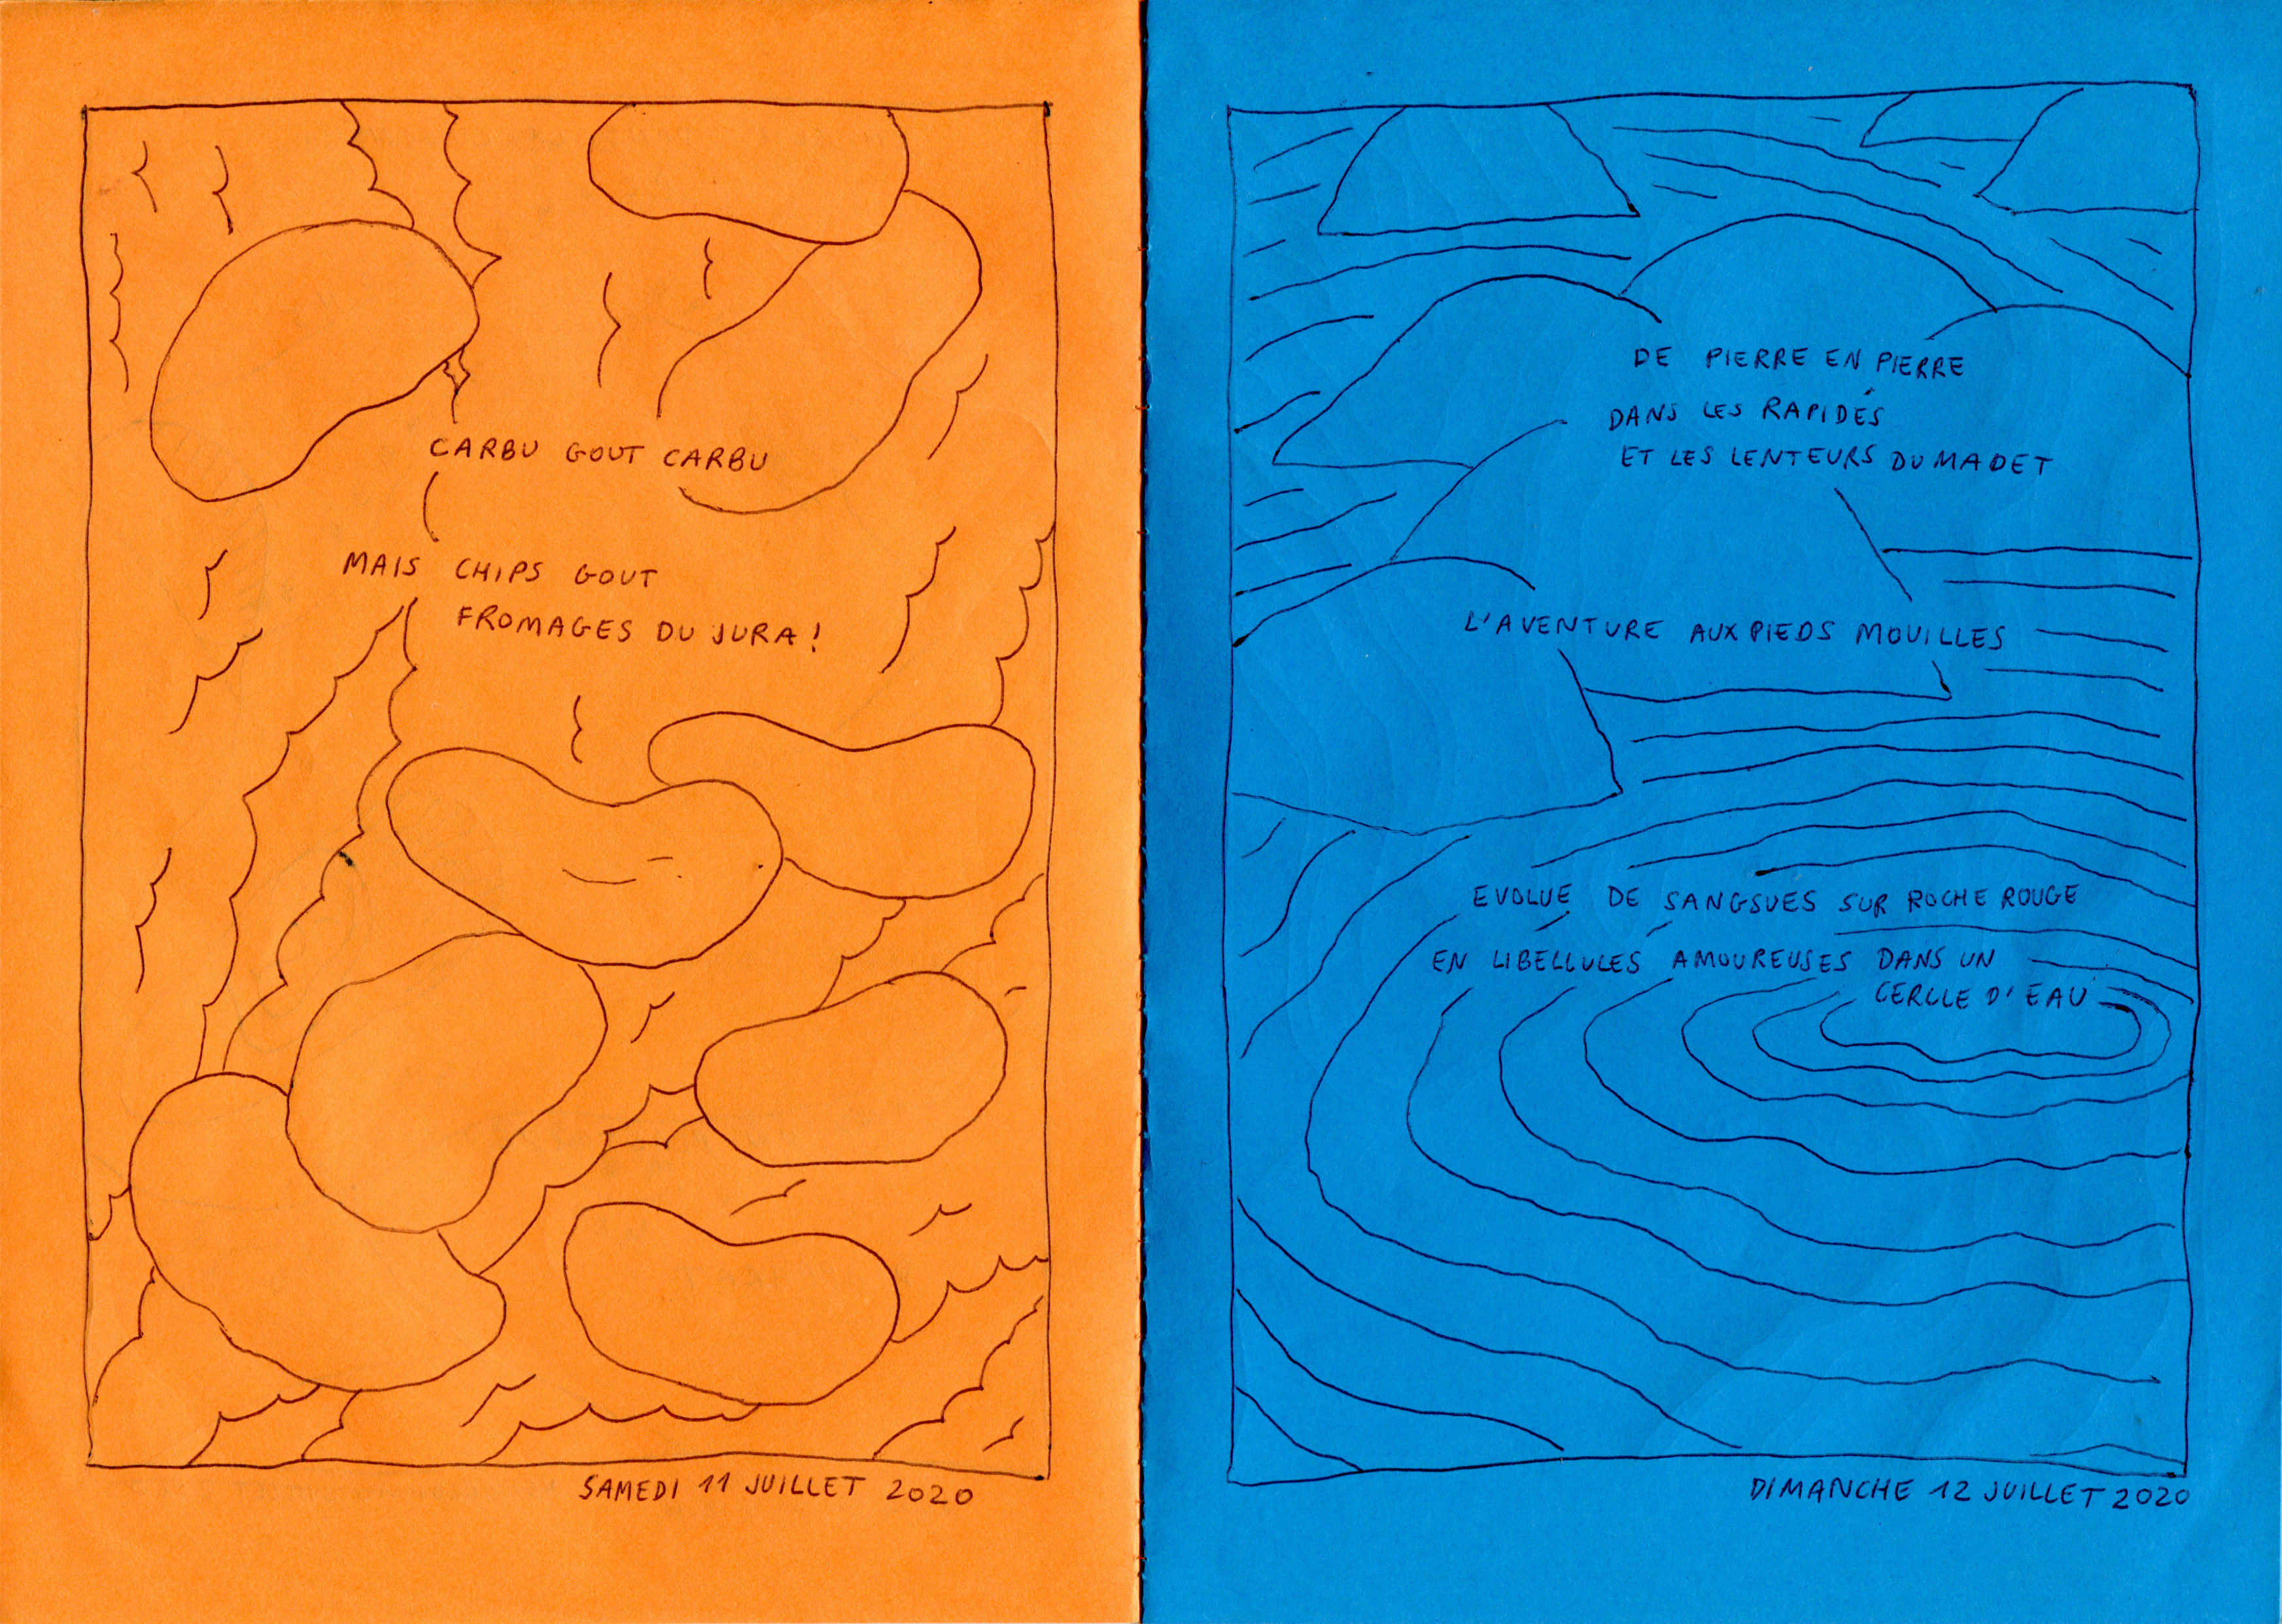 CARBU GOUT CARBU
MAIS CHIPS GOUT
FROMAGES DU JURA!
SAMEDI 11 JUILLET 2020
DE PIERRE EN PIERRE
DANS LES RAPIDES
ET LES LENTEURS DU MADET
L'AVENTURE AUX PIEDS MOUILLES
EVOLUE DE SANGSUES SUR ROCHE ROUGE
EN LIBELLULES AMOUREUSES DANS UN
CERCLE D'EAU
DIMANCHE 12 JUILLET 2020